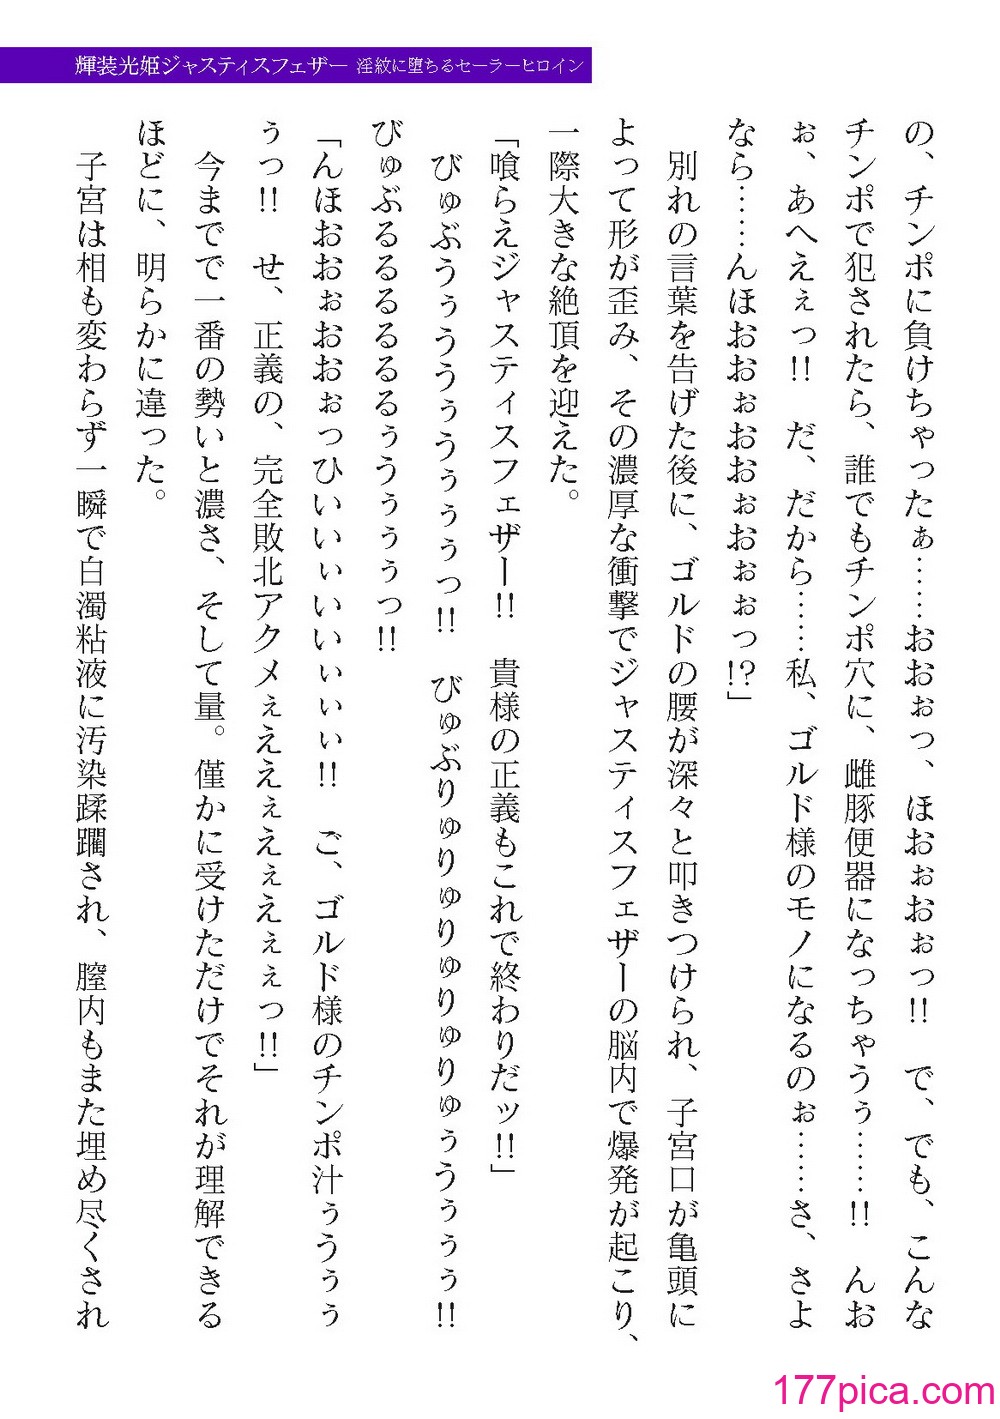 輝装光姫ジャスティスフェザー 淫紋に堕ちるセーラーヒロイン
の、チンポに負けちゃったぁ……おおぉっ、ほおぉおぉっ!! で、でも、こんな
チンポで犯されたら、誰でもチンポ穴に、雌豚便器になっちゃうぅ……!! んお
ぉ、あへえぇっ!! だ、だから……私、ゴルド様のモノになるのぉ……さ、さよ
なら……んほおおぉおおぉおぉぉっ!?」
別れの言葉を告げた後に、ゴルドの腰が深々と叩きつけられ、子宮口が亀頭に
よって形が歪み、その濃厚な衝撃でジャスティスフェザーの脳内で爆発が起こり、
一際大きな絶頂を迎えた。
「喰らえジャスティスフェザー!! 貴様の正義もこれで終わりだッ!!」
びゅぶうぅううぅうぅぅぅっ!! びゅぶりゅりゅりゅりゅりゅぅうぅぅぅ!!
びゅぶるるるるるぅうぅぅぅっ!!
「んほおおぉおおぉっひいいぃいいぃぃぃ!! ご、ゴルド様のチンポ汁ぅうぅぅ
ぅっ!! せ、正義の、完全敗北アクメぇええぇえぇえぇぇっ!!」
今までで一番の勢いと濃さ、そして量。僅かに受けただけでそれが理解できる
ほどに、明らかに違った。
子宮は相も変わらず一瞬で白濁粘液に汚染蹂躙され、膣内もまた埋め尽くされ
177pica.com